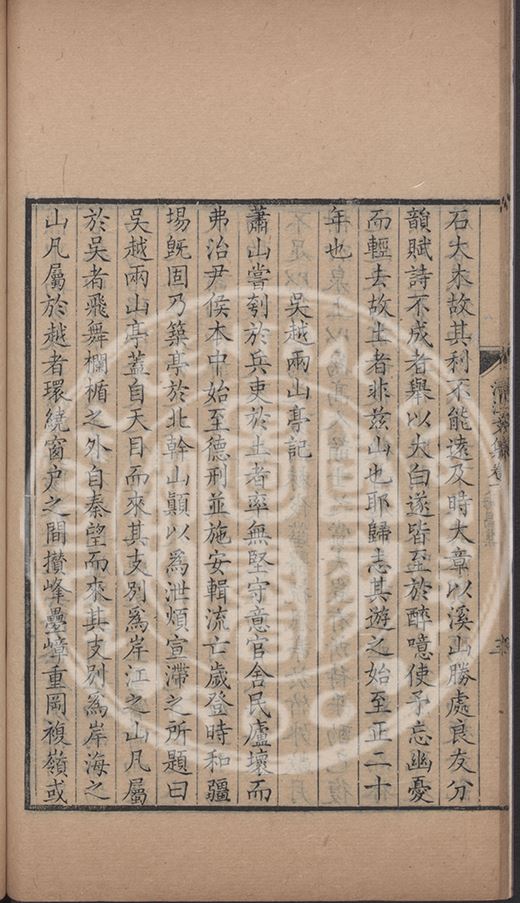 石大木故其利不能遠及時大章以溪山勝處良友分
韻賦詩不成者舉以大白遂皆至於醉噫使予忘幽憂
而輕去故土者非玆山也耶歸志其遊之始至正二十
年也
吳越兩山亭記
蕭山嘗刳於兵吏於土者率無堅守意官舍民廬壞而
弗治尹侯本中始至德刑並施安輯流亡歲登時和疆
場旣固乃築亭於北幹山顚以爲泄煩宣滯之所題曰
吳越兩山亭蓋自天目而來其支别爲岸江之山凡屬
於吳者飛舞欄楯之外自秦望而來其支别爲岸海之
山凡屬於越者環繞窗户之間攅峰疊嶂重岡複嶺或